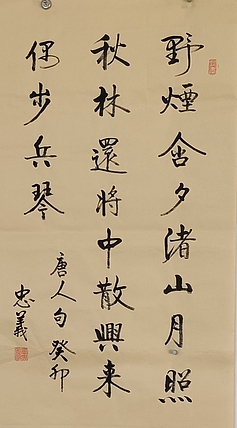 野煙含夕渚山月照
秋林還將中散興来
偶步兵琴
唐人句癸卯
忠義